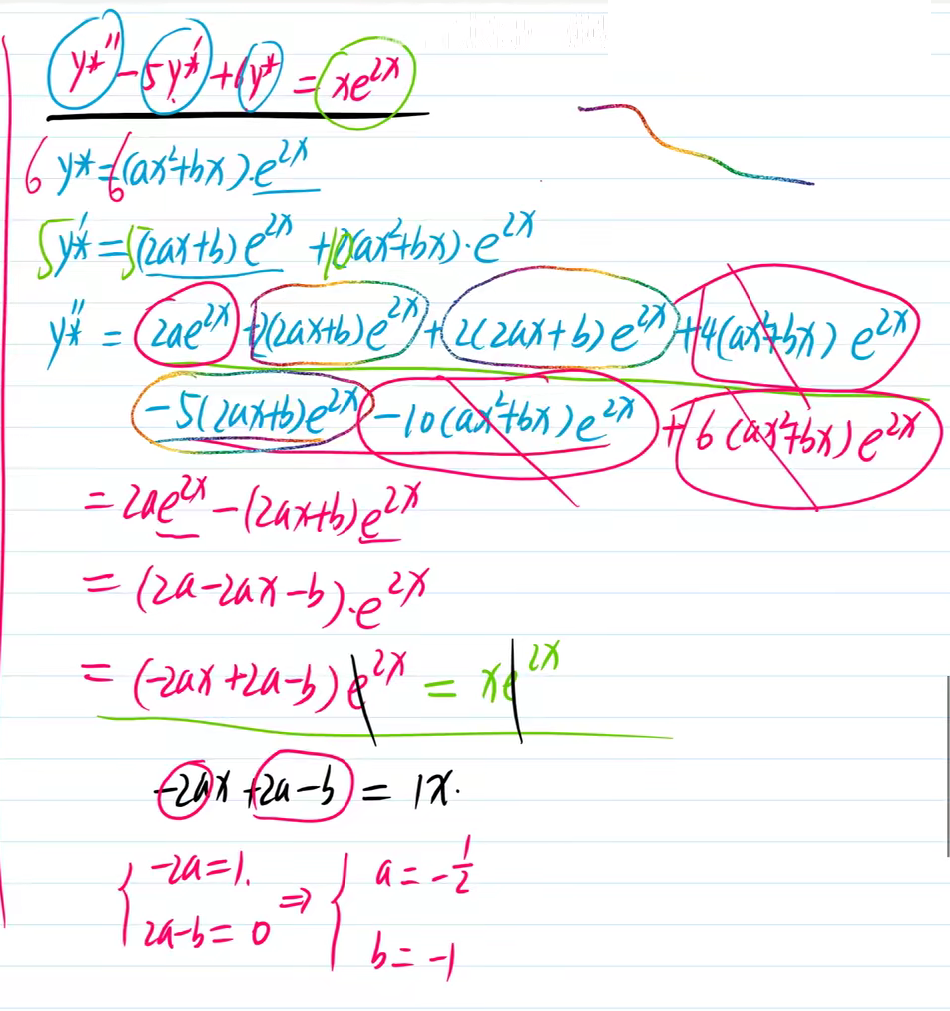 y*'' - 5y*' + 6y* = xe^{2x}
6 y* = 6(ax²+bx)·e^{2x}
5y*' = 5(2ax+b)e^{2x} + 10(ax²+bx)·e^{2x}
y*'' = 2ae^{2x} + 2(2ax+b)e^{2x} + 2(2ax+b)e^{2x} + 4(ax²+bx)e^{2x}
-5(2ax+b)e^{2x} - 10(ax²+bx)e^{2x} + 6(ax²+bx)e^{2x}
= 2ae^{2x} - (2ax+b)e^{2x}
= (2a-2ax-b)·e^{2x}
= (-2ax+2a-b)e^{2x} = xe^{2x}
-2ax+2a-b = 1x.
{ -2a=1. ⇒ { a=-1/2
2a-b=0 b=-1